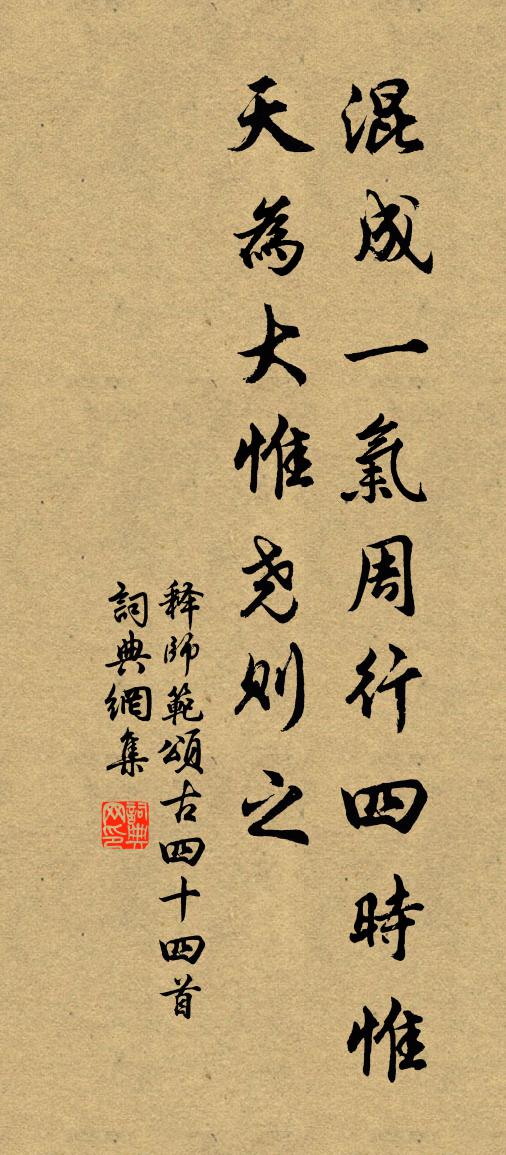 混成一氣周行四時惟
天為大惟尧則之
释師範頌古四十四首
詞典網集
詞典网印